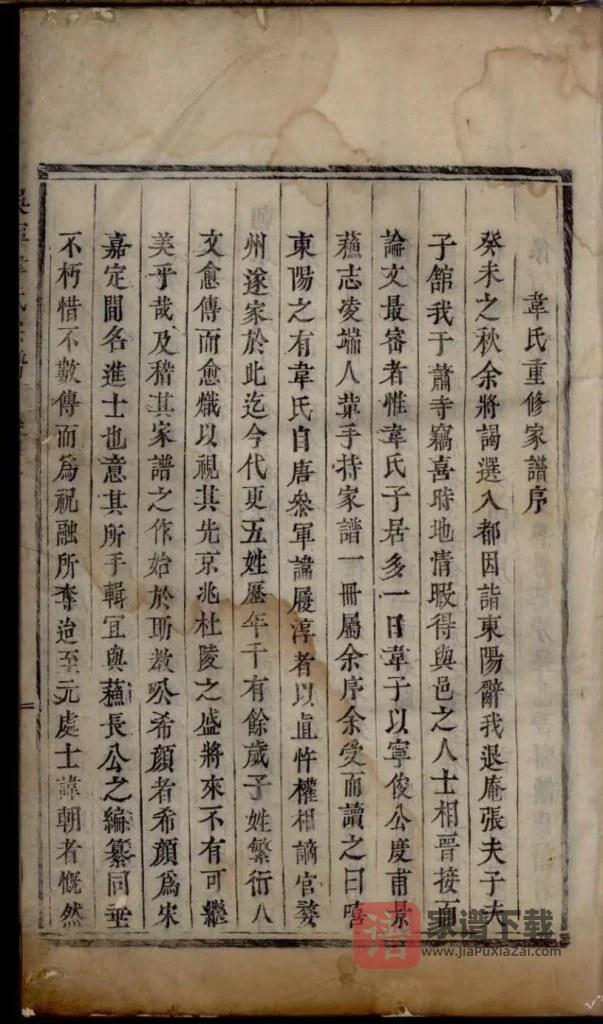 韋氏重修家譜序
癸未之秋余將謁選入都因詣東陽辭我退庵張夫子夫
子舘我于蕭寺竊喜時地情暇得與邑之人士相晉接面
論文最審者惟韋氏子居多一日韋子以寧俊公度甫景
蘓志凌端人軰手持家譜一冊屬余序余受而讀之曰嘻
東陽之有韋氏自唐叅軍諱屐淳者以直忤權相謫官婺
州遂家於此迄今代更五姓歷年千有餘歲子姓繁衍人
文愈傳而愈熾以視其先京兆杜陵之盛將來不有可繼
美乎哉及稽其家譜之作始於助教公希顔者希顔爲宋
嘉定間名進士也意其所手輯宜與蘓長公之編纂同垂
不朽惜不數傳而爲祝融所奪迨至元處士諱朝者慨然
譜
家谱下载
www.jiaPuXiaZai.com